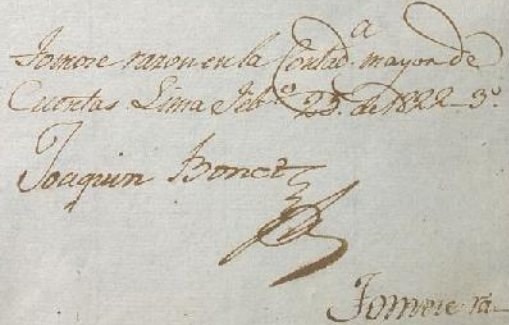 Tomose razon en la Contad.a mayor de
Cuentas. Lima Feb.o 25. de 1822_3.o
Joaquin Bonet
Tomose ra-